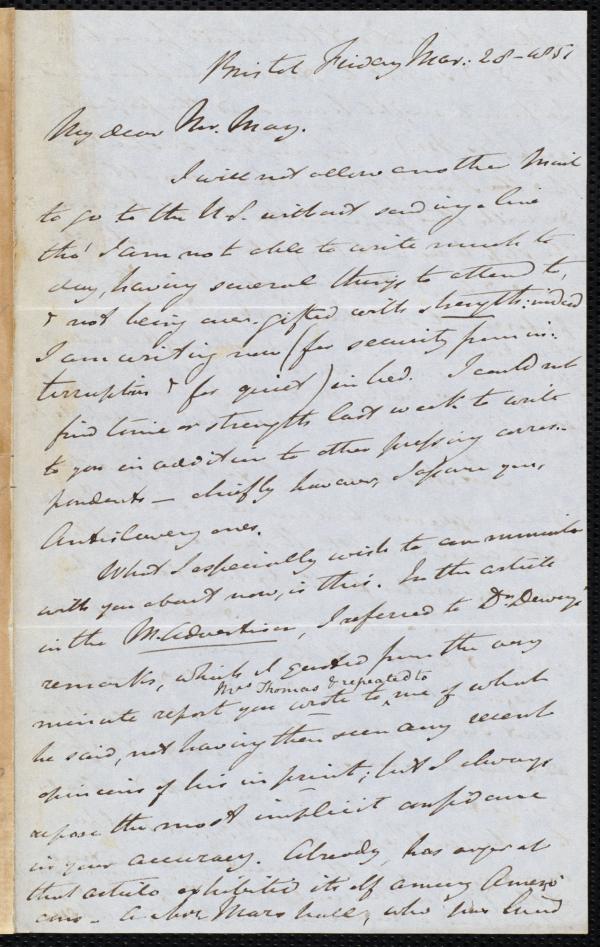 Bristol Friday Mar: 28 - 1851
My dear Mr. May.
I will not allow another Mail
to go to the U.S. without sending a line
tho' I am not able to write much to
day, having several things to attend to,
& not being over-gifted with strength: indeed
I am writing now (for security from in-
terruption & for quiet) in bed. I could not
find time or strength last week to write
to you in addition to other pressing corres-
pondents — chiefly however, I assure you,
Antislavery ones.
What I especially wish to communicate
with you about now, is this. In the article
in the M. Advertiser, I referred to Dr. Dewey's
remarks, which I quoted from the very
Mrs Thomas & repeated to
minute report you wrote to me of what
he said, not having then seen any recent
opinions of his in print; but I always
repose the most implicit confidence
in your accuracy. Already, has anger at
that article exhibited itself among Ameri-
cans - A Mr. Marshall, who has lived